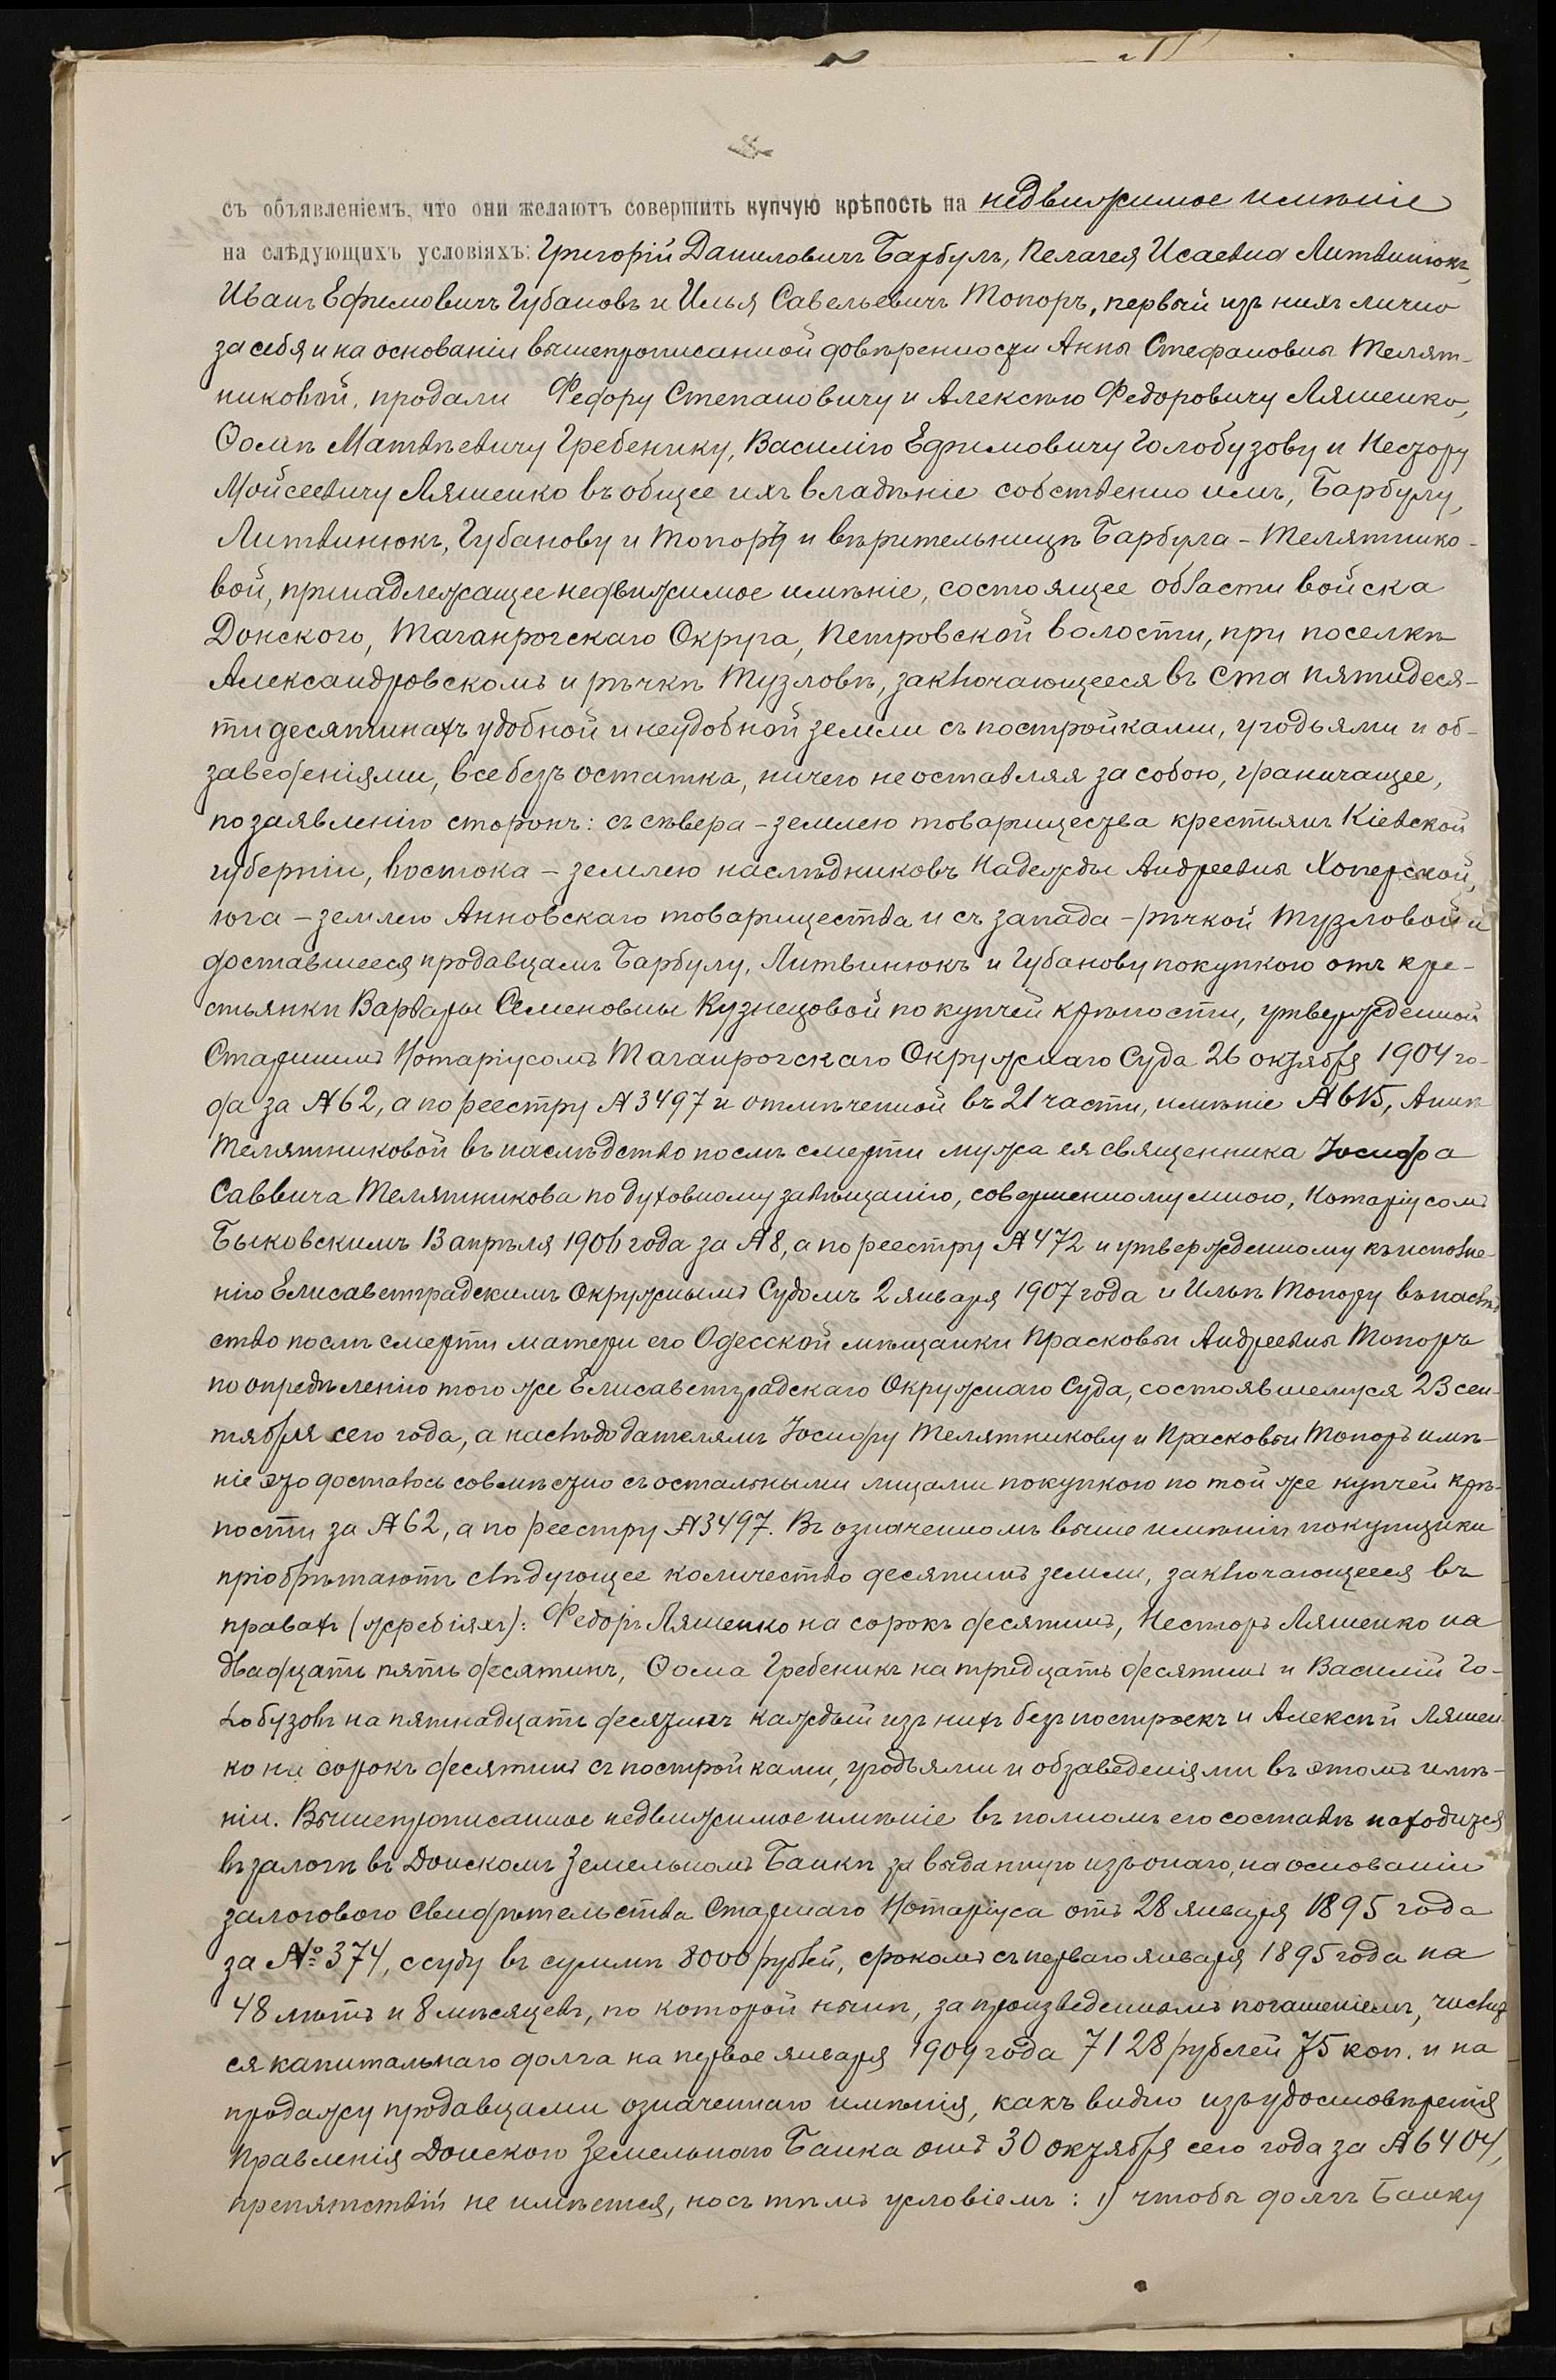 съ объявленіемъ, что они желаютъ совершить купчую крѣпость на недвижимое имѣніе
на слѣдующихъ условіяхъ: Григорій Даниловичъ Барбулъ, Пелагея Исаевна Литвинюкъ,
Иванъ Ефимовичъ Губановъ и Илья Савельевичъ Топоръ, первый изъ нихъ лично
за себя и на основаніи вышепрописанной довѣренности Анны Стефановны Телят-
никовой, продали Федору Степановичу и Алексѣю Федоровичу Ляшенко,
Ѳомѣ Матвѣевичу Гребенику, Василію Ефимовичу Голобузову и Нестору
Мойсеевичу Ляшенко въ общее ихъ владѣніе собственно имъ, Барбулу,
Литвинюкъ, Губанову и Топору и вѣрительницѣ Барбула - Телятнико-
вой, принадлежащее недвижимое имѣніе, состоящее области войска
Донского, Таганрогскаго Округа, Петровской волости, при поселкѣ
Александровскомъ и рѣчкѣ Тузловѣ, заключающееся въ ста пятидеся-
ти десятинахъ удобной и неудобной земли съ постройками, угодьями и об-
заведеніями, все безъ остатка, ничего не оставляя за собою, граничащее,
по заявленію сторонъ: съ сѣвера - землею товарищества крестьянъ Кіевской
губерніи, востока - землею наслѣдниковъ Надежды Андреевны Хоперской,
юга - землею Анновскаго товарищества и съ запада - рѣчкой Тузловой и
доставшееся продавцамъ Барбулу, Литвинюкъ и Губанову покупкою отъ кре-
стьянки Варвары Семеновны Кузнецовой по купчей крѣпости, утвержденной
Старшимъ Нотаріусомъ Таганрогскаго Окружнаго Суда 26 октября 1904 го-
да за № 62, а по реестру № 3497 и отмѣченной въ 21 части, имѣніе № 615, Аннѣ
Телятниковой въ наслѣдство послѣ смерти мужа ея священника Іосифа
Саввича Телятникова по духовному завѣщанію, совершенному мною, Нотаріусомъ
Быковскимъ 13 апрѣля 1906 года за № 8, а по реестру № 472 и утвержденному къ исполне-
нію Елисаветградскимъ Окружнымъ Судомъ 2 января 1907 года и Ильѣ Топору въ наслѣд
ство послѣ смерти матери его Одесской мѣщанки Прасковьи Андреевны Топоръ
по опредѣленію того же Елисаветградскаго Окружнаго Суда, состоявшемуся 23 сен-
тября сего года, а наслѣдодателямъ Іосифу Телятникову и Прасковьи Топоръ имѣ-
ніе это досталось совмѣстно съ остальными лицами покупкою по той же купчей крѣ-
пости за № 62, а по реестру № 3497. Въ означенномъ выше имѣніи покупщики
пріобрѣтаютъ слѣдующее количество десятинъ земли, заключающееся въ
правахъ (жребіяхъ): Федоръ Ляшенко на сорокъ десятинъ, Несторъ Ляшенко на
двадцать пять десятинъ, Ѳома Гребеникъ на тридцать десятинъ и Василій Го-
лобузовъ на пятнадцать десятинъ каждый изъ нихъ безъ построекъ и Алексѣй Ляшен-
ко на сорокъ десятинъ съ постройками, угодьями и обзаведеніями въ этомъ имѣ-
ніи. Вышепрописанное недвижимое имѣніе въ полномъ его составѣ находится
въ залогѣ въ Донскомъ Земельномъ Банкѣ за выданную изъ онаго, на основаніи
залогового свидѣтельства Старшаго Нотаріуса отъ 28 января 1895 года
за № 374, ссуду въ суммѣ 8000 рублей, срокомъ съ перваго января 1895 года на
48 лѣтъ и 8 мѣсяцевъ, по которой нынѣ, за произведеннымъ погашеніемъ, числит
ся капитальнаго долга на первое января 1909 года 7128 рублей 75 коп. и на
продажу продавцами означеннаго имѣнія, какъ видно изъ удостовѣренія
Правленія Донского Земельнаго Банка отъ 30 октября сего года за № 6404,
препятствій не имѣется, но съ тѣмъ условіемъ: 1) чтобы долгъ Банку